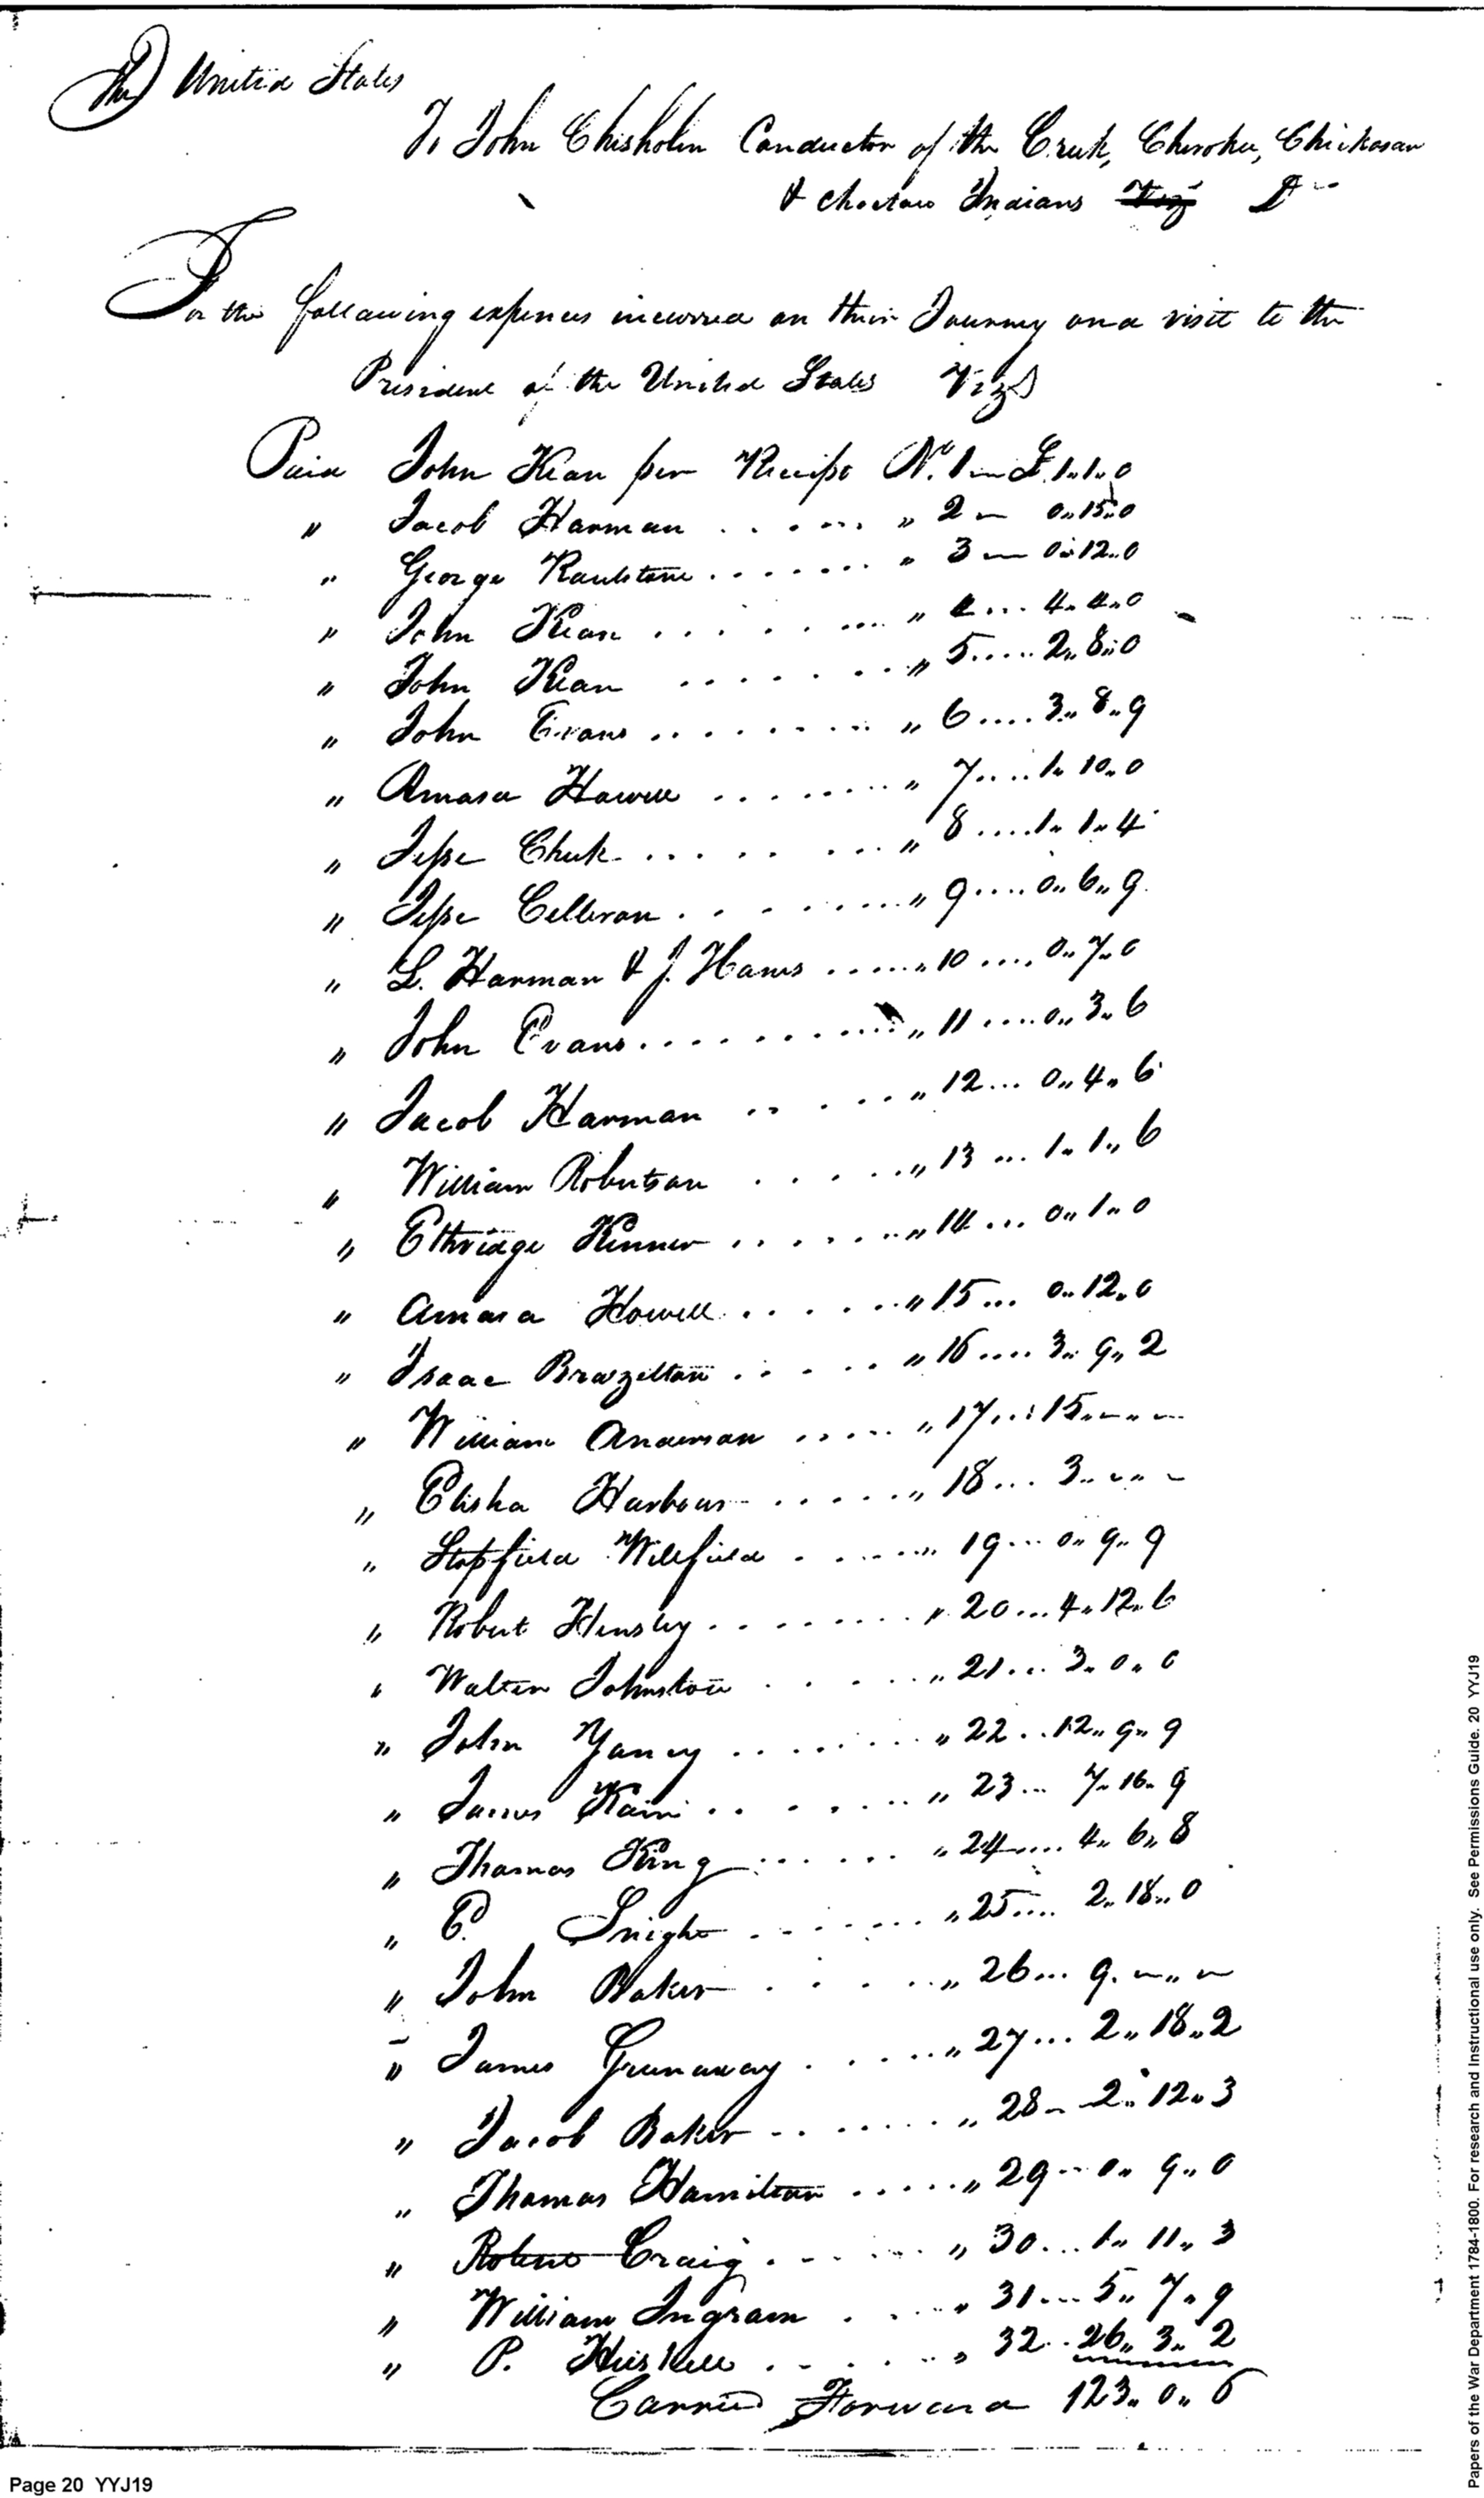 The United States
To John Chisholm Conductor of the Creek, Cherokee, Chickasaw
& Choctaw Indians Viz Dr
For the following expences incurred on their Journey on a visit to the
President of the United States Vizt
Paid John Kean per Receipt No. 1 — £ 1.. 1.. 0
" Jacob Harman ...... " 2 — 0.. 15.. 0
" George Raulstone ....... " 3 — 0.. 12.. 0
" John Kean ........ " 4 ... 4.. 4.. 0
" John Kean ....... " 5 ..... 2.. 8.. 0
" John Evans ......... " 6 .... 3.. 8.. 9
" Amasa Howell ........ " 7 .... 1.. 10.. 0
" Jesse Cheek ........ " 8 .... 1.. 1.. 4
" Jesse ........ " 9 .... 0.. 6.. 9
" L. Harman & J. Hams ..... " 10 .... 0.. 7.. 0
" John Evans ........... " 11 .... 0.. 3.. 6
" Jacob Harman ...... " 12 ... 0.. 4.. 6
" William Robertson ...... " 13 ... 1.. 1.. 6
" Ethridge Kenner ....... " 14 ... 0.. 1.. 0
" Amasa Howell ....... " 15 ... 0.. 12.. 0
" Isaac Brazelton ...... " 16 .... 3.. 9.. 2
" William Anderson ..... " 17 ... 15.. — .. —
" Elisha Harbour ...... " 18 ... 3.. — .. —
" Stopfield Willfield ..... " 19 ... 0.. 9.. 9
" Robert Hensley ........ " 20 ... 4.. 12.. 6
" Walter Johnston ..... " 21 ... 3.. 0.. 0
" John Yancy ........ " 22 .. 12.. 9.. 9
" James Kain ....... " 23 ... 7.. 16.. 9
" Thomas King ...... " 24 .... 4.. 6.. 8
" E. ....... " 25 .... 2.. 18.. 0
" John Baker ..... " 26 ... 9.. — .. —
" James Greenaway ..... " 27 ... 2.. 18.. 2
" Jacob Baker ....... " 28 — 2.. 12.. 3
" Thomas Hamilton ..... " 29 — 0.. 9.. 0
" Robert Craig ...... " 30 ... 1.. 11.. 3
" William Ingram .... " 31 ... 5.. 7.. 9
" P. Heiskell ...... " 32 .. 26.. 3.. 2
Carried Forward 123.. 0.. 6
Page 20 YYJ19
Papers of the War Department 1784-1800. For research and Instructional use only. See Permissions Guide. 20 YYJ19